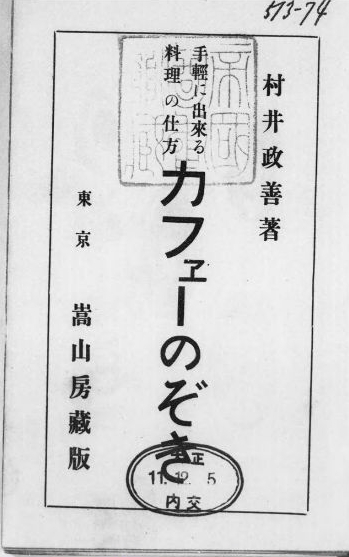 513-74
村井政善著
手輕に出來る
料理の仕方
カフヱーのぞき
東京 嵩山房藏版
正
11.12.5
内交